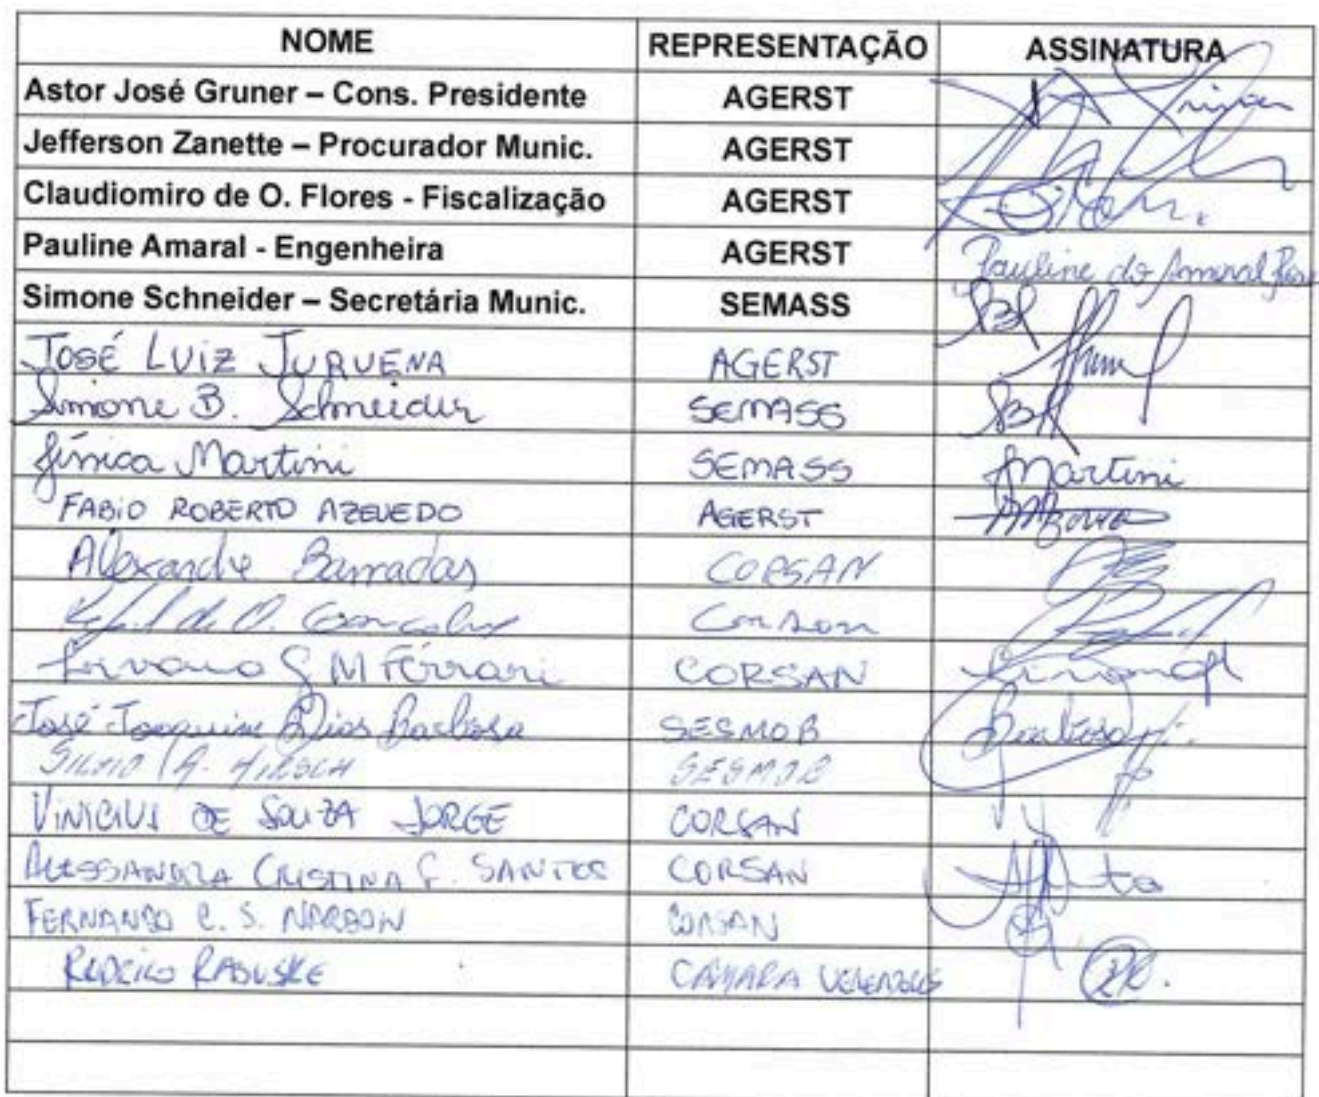 NOME REPRESENTAÇÃO ASSINATURA
Astor José Gruner – Cons. Presidente AGERST
Jefferson Zanette – Procurador Munic. AGERST
Claudiomiro de O. Flores - Fiscalização AGERST
Pauline Amaral - Engenheira AGERST Pauline do Amaral
Simone Schneider – Secretária Munic. SEMASS
JOSÉ LUIZ JURUENA AGERST
Simone B. Schneider SEMASS
Martini SEMASS Martini
FABIO ROBERTO AZEVEDO AGERST
Alexandre Barradas CORSAN
de O. Goncalves Corsan
M Ferrari CORSAN
José Joaquim Dias Barbosa SESMOB Barbosa
SILVIO SESMOB
VINICIUS DE SOUZA JORGE CORSAN
ALESSANDRA CRISTINA F. SANTOS CORSAN
FERNANDO C. S. CORSAN
RABUSKE CÂMARA